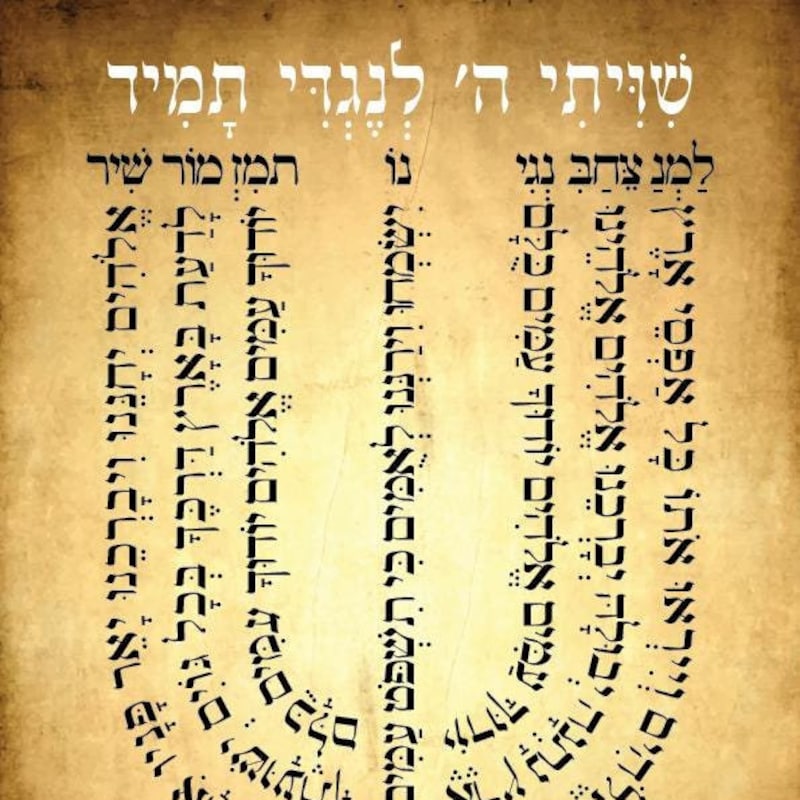 שִׁוִּיתִי ה׳ לְנֶגְדִּי תָמִיד
לַמְנַ צֵּחַבִּ נְגִי נוֹ תמִזְ מוֹר שִׁיר
אֱלֹהִים יְחָנֵּנוּ וִיבָרְכֵנוּ יָאֵר פָּנָיו
לָדַעַת בָּאָרֶץ דַּרְכֶּךָ בְּכָל גּוֹיִם יְשׁוּעָתֶךָ
יוֹדוּךָ עַמִּים אֱלֹהִים יוֹדוּךָ עַמִּים כֻּלָּם
יִשְׂמְחוּ וִירַנְּנוּ לְאֻמִּים כִּי תִשְׁפֹּט עַמִּים
יוֹדוּךָ עַמִּים אֱלֹהִים יוֹדוּךָ עַמִּים כֻּלָּם
אֶרֶץ נָתְנָה יְבוּלָהּ יְבָרְכֵנוּ אֱלֹהִים אֱלֹהֵינוּ
אֱלֹהִים וְיִירְאוּ אֹתוֹ כָּל אַפְסֵי אָרֶץ